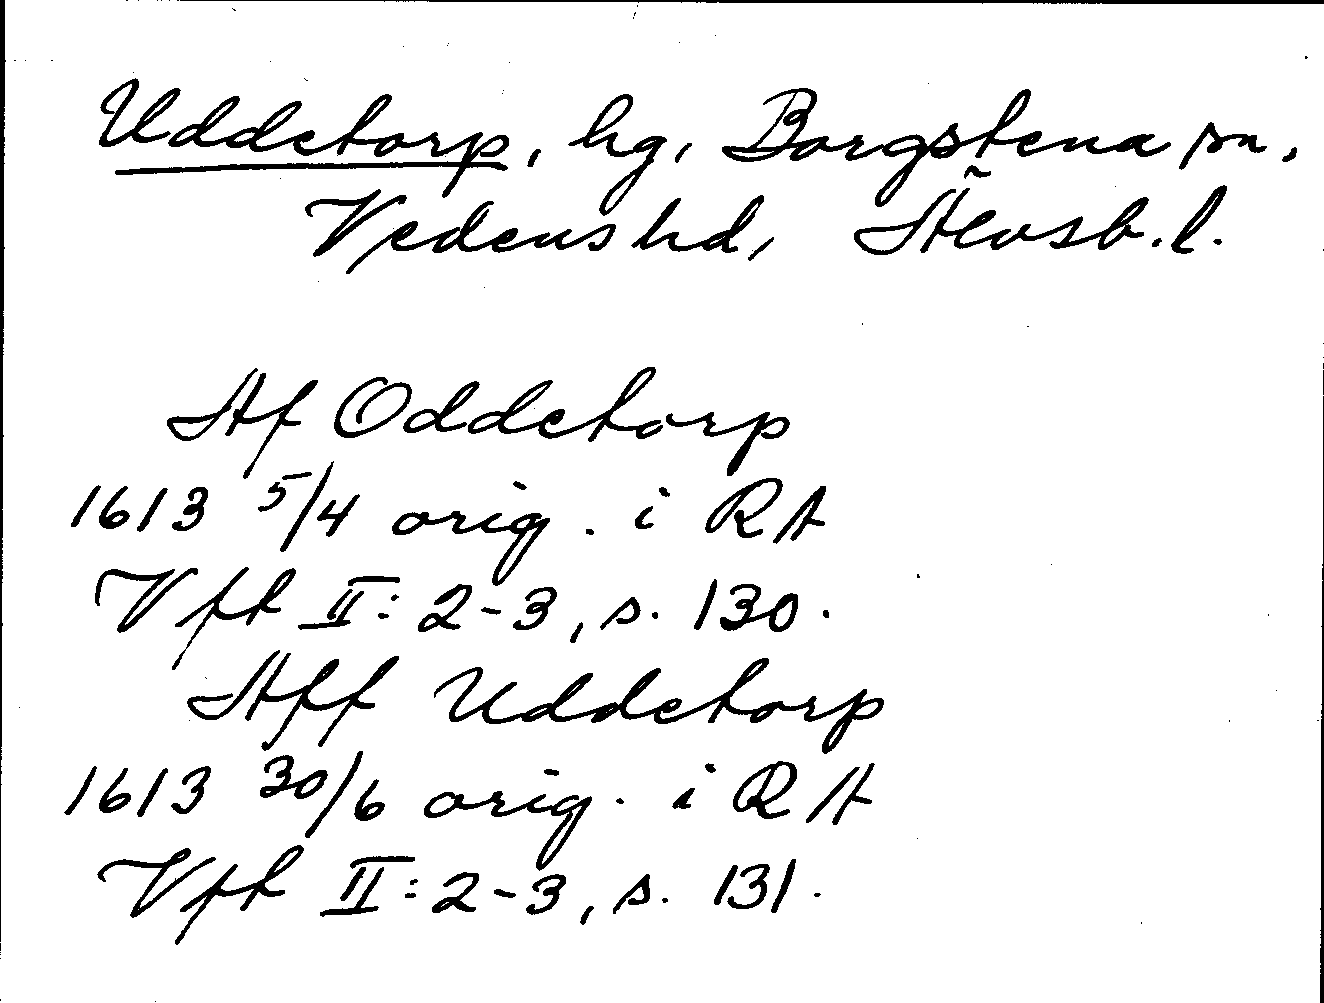 Uddetorp, hg, Borgstena sn,
Vedens hd, Älvsb. l.
Af Oddetorp
1613 5/4 orig. i RA
Vft II: 2-3, s. 130.
Aff Uddetorp
1613 30/6 orig. i RA
Vft II: 2-3, s. 131.